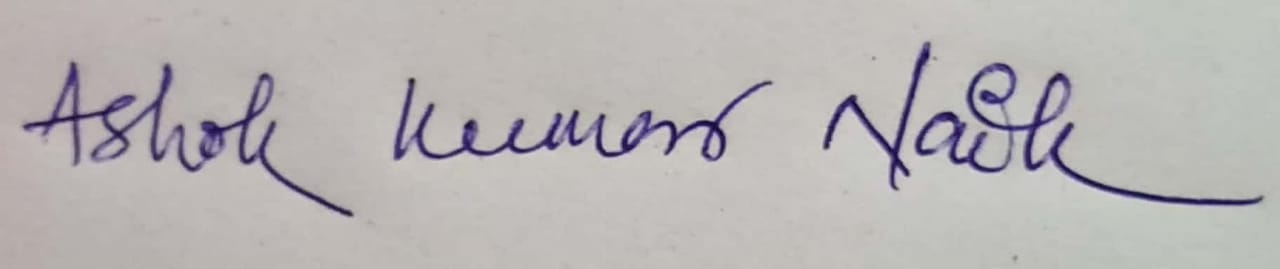 Ashok Kumar Naik